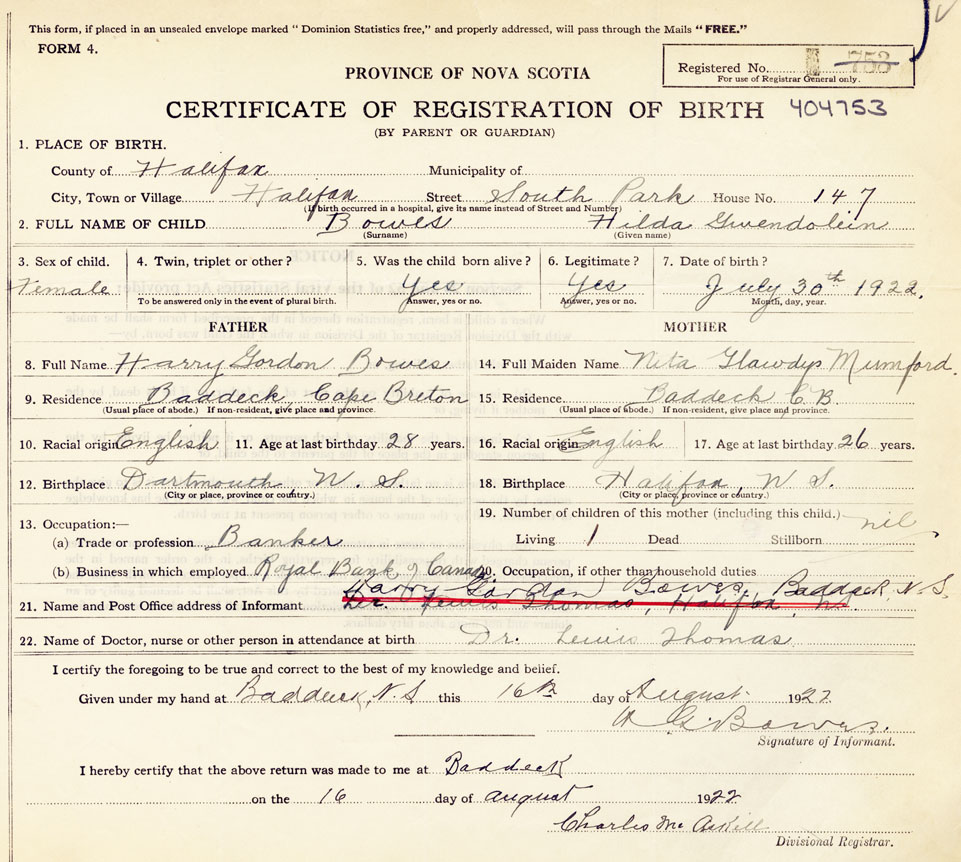 This form, if placed in an unsealed envelope marked " Dominion Statistics free," and properly addressed, will pass through the Mails "FREE."
FORM 4.
Registered No. 753
For use of Registrar General only.
PROVINCE OF NOVA SCOTIA
CERTIFICATE OF REGISTRATION OF BIRTH 404753
(BY PARENT OR GUARDIAN)
1. PLACE OF BIRTH.
County of Halifax Municipality of
City, Town or Village Halifax Street South Park House No. 147
(If birth occurred in a hospital, give its name instead of Street and Number)
2. FULL NAME OF CHILD Bowes Hilda Gwendolein
(Surname) (Given name)
3. Sex of child. 4. Twin, triplet or other? 5. Was the child born alive? 6. Legitimate? 7. Date of birth?
Female Yes Yes July 30th 1922.
To be answered only in the event of plural birth. Answer, yes or no. Answer, yes or no. Month, day, year.
FATHER MOTHER
8. Full Name Harry Gordon Bowes 14. Full Maiden Name Nita Glawdys Mumford.
9. Residence Baddeck, Cape Breton 15. Residence. Baddeck C.B.
(Usual place of abode.) If non-resident, give place and province. (Usual place of abode.) If non-resident, give place and province.
10. Racial origin English 11. Age at last birthday 28 years. 16. Racial origin English 17. Age at last birthday 26 years.
12. Birthplace Dartmouth N. S. 18. Birthplace Halifax, N S.
(City or place, province or country.) (City or place, province or country.)
13. Occupation:— 19. Number of children of this mother (including this child.)
(a) Trade or profession Banker Living 1 Dead Stillborn nil
(b) Business in which employed Royal Bank of Canada 20. Occupation, if other than household duties
Harry Gordon Bowes, Baddeck, N.S.
21. Name and Post Office address of Informant Dr. Lewis Thomas, Halifax, N.S.
22. Name of Doctor, nurse or other person in attendance at birth. Dr. Lewis Thomas.
I certify the foregoing to be true and correct to the best of my knowledge and belief.
Given under my hand at Baddeck, N.S this 16th day of August 1922
H. G. Bowes.
Signature of Informant.
I hereby certify that the above return was made to me at Baddeck
on the 16 day of august 1922
Charles Mc Askill
Divisional Registrar.